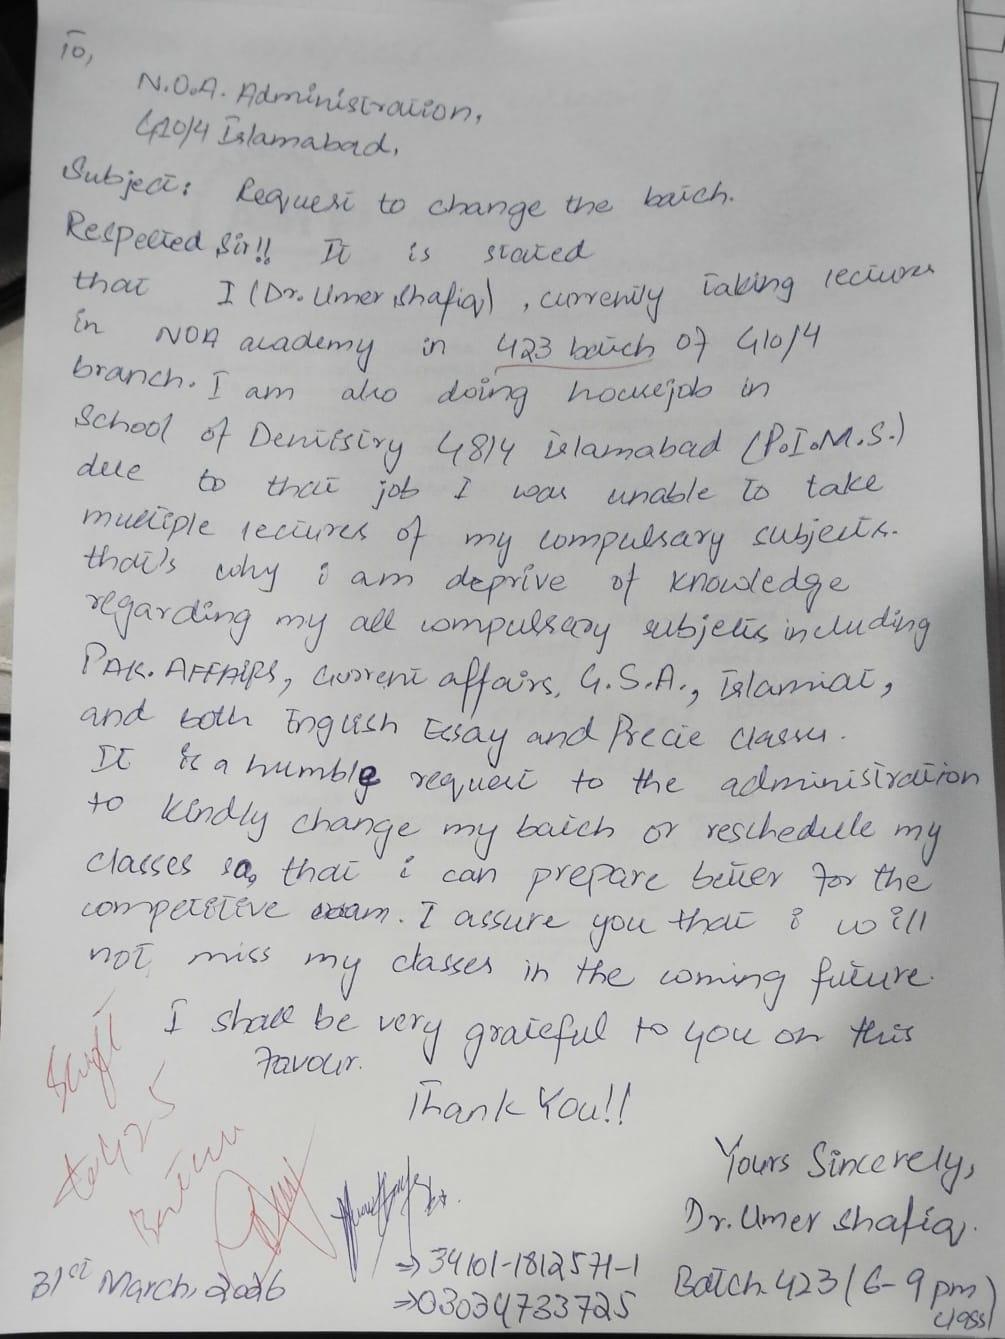 To,
N.O.A. Administration,
G10/4 Islamabad,
Subject: Request to change the batch.
Respected Sir!! It is stated
that I (Dr. Umer Shafiq), currently taking lectures
in NOA academy in 423 batch of G10/4
branch. I am also doing housejob in
School of Dentistry G8/4 islamabad (P.I.M.S.)
due to that job I was unable to take
multiple lectures of my compulsary subjects.
that's why i am deprive of knowledge
regarding my all compulsary subjects including
PAK. AFFAIRS, Current affairs, G.S.A., Islamiat,
and both English Essay and Precie classes.
It is a humble request to the administration
to kindly change my batch or reschedule my
classes so, that i can prepare better for the
competitive exam. I assure you that i will
not miss my classes in the coming future.
I shall be very grateful to you on this
favour.
Thank You!!
Yours Sincerely,
Dr. Umer Shafiq.
Batch 423 (6-9 pm)
class
→ 34101-1812571-1
→ 03034733725
31st March, 2026
to 425